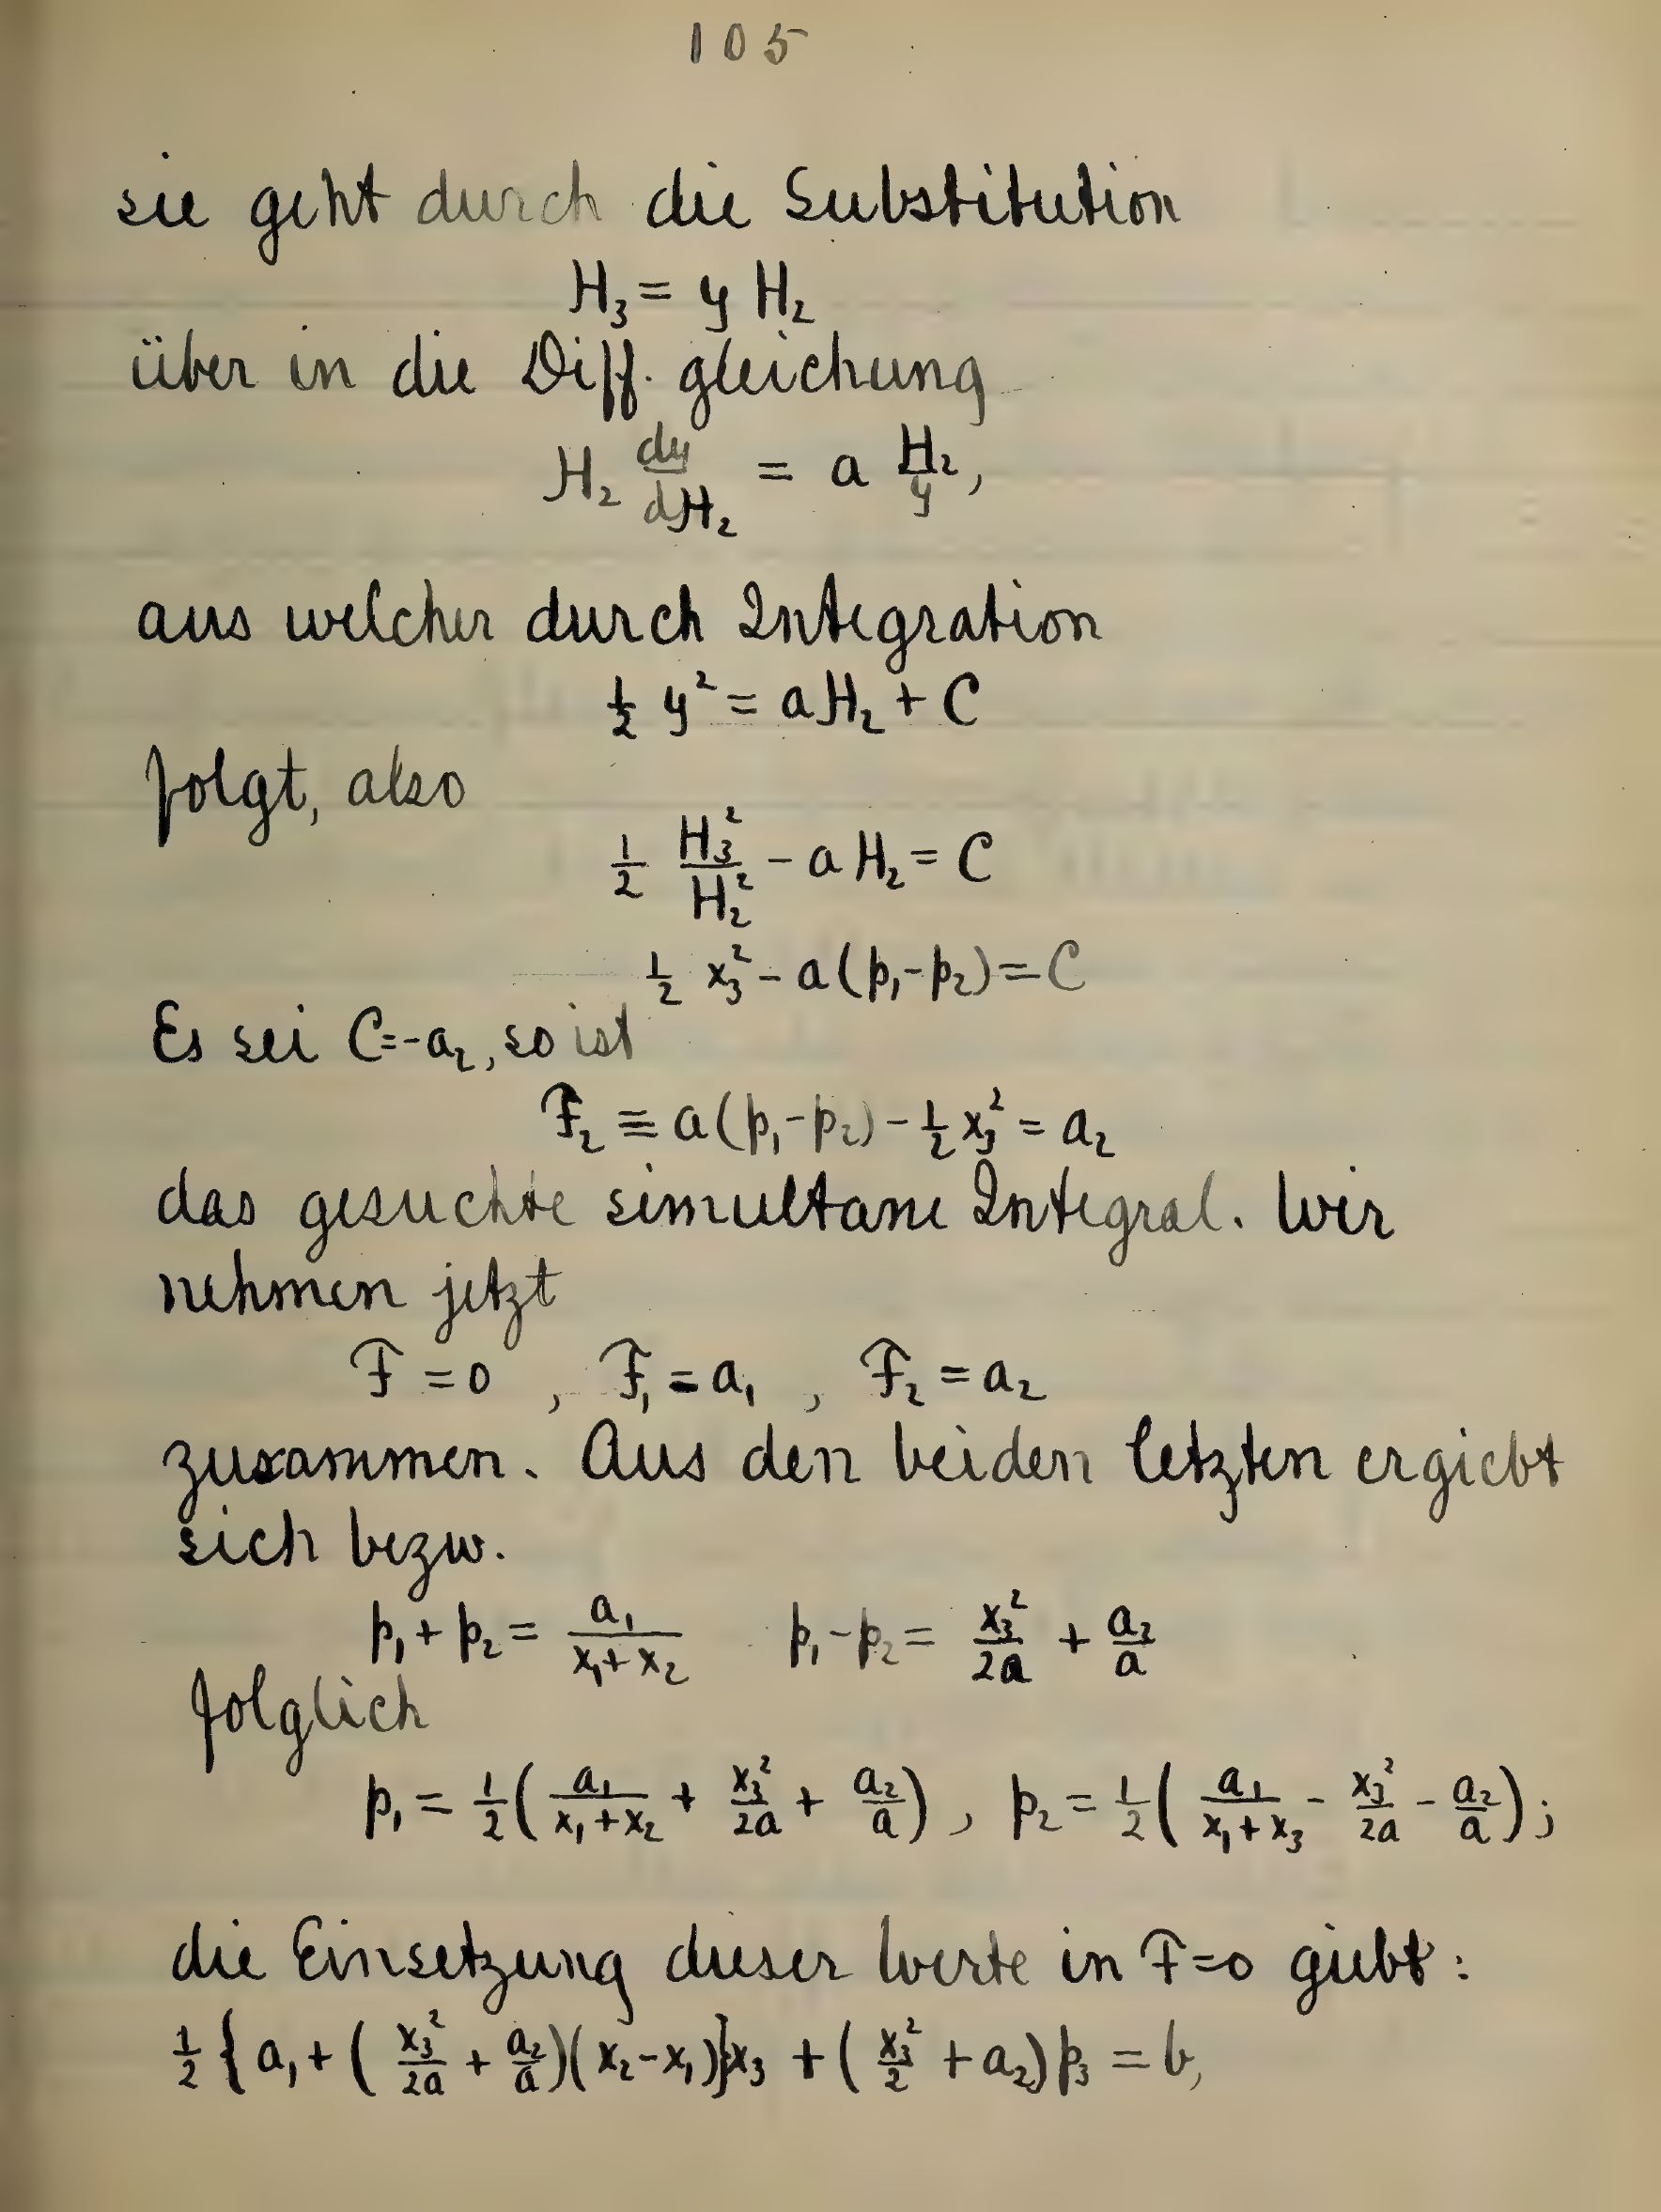 105
sie geht durch die Substitution
H₃ = y H₂
über in die Diff. gleichung
H₂ dy/dH₂ = a H₂/y,
aus welcher durch Integration
½ y² = aH₂ + C
folgt, also
½ H₃²/H₂² - a H₂ = C
½ x₃² - a(p₁-p₂) = C
Es sei C=-a₂, so ist
F₂ ≡ a(p₁-p₂) - ½ x₃² = a₂
das gesuchte simultane Integral. Wir
nehmen jetzt
F = 0 , F₁ = a₁ , F₂ = a₂
zusammen. Aus den beiden letzten ergiebt
sich bezw.
p₁ + p₂ = a₁/(x₁+x₂) p₁-p₂ = x₃²/2a + a₂/a
folglich
p₁ = ½( a₁/(x₁+x₂) + x₃²/2a + a₂/a ) , p₂ = ½( a₁/(x₁+x₃) - x₃²/2a - a₂/a );
die Einsetzung dieser Werte in F=0 giebt:
½ { a₁ + ( x₃²/2a + a₂/a )( x₂-x₁ )} x₃ + ( x₃²/2 + a₂ ) p₃ = b,